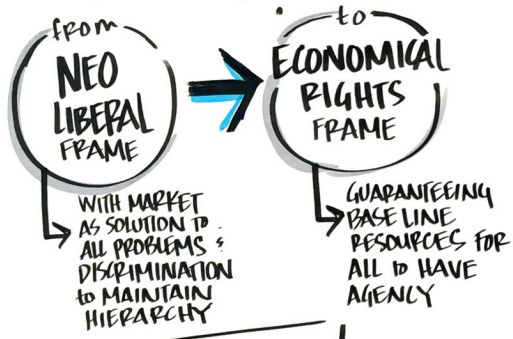 from
NEO
LIBERAL
FRAME
WITH MARKET
AS SOLUTION TO
ALL PROBLEMS &
DISCRIMINATION
to MAINTAIN
HIERARCHY
to
ECONOMICAL
RIGHTS
FRAME
GUARANTEEING
BASE LINE
RESOURCES FOR
ALL to HAVE
AGENCY